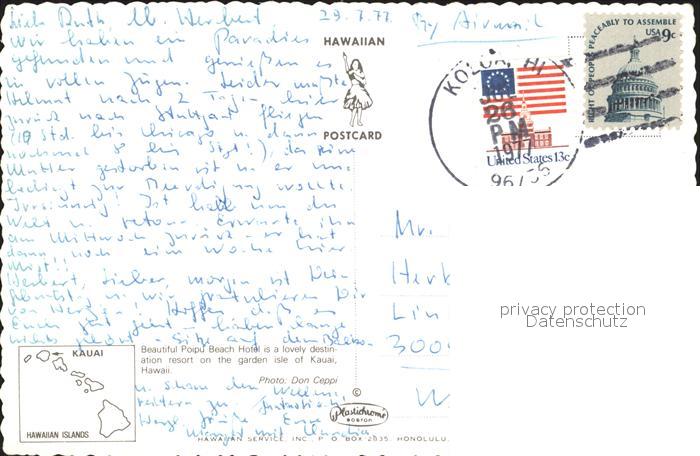 Ruth u. Herbert, 29.7.77 By Airmail
Wir haben ein Paradies
gefunden und genießen es
in vollen Zügen. Leider mußte
Helmut nach 2 Tagen hier
zurück nach Stuttgart fliegen
(10 Std. bis Chicago u. dann
nochmal 8 bis Stgt!) da seine
Mutter gestorben ist u. er un-
bedingt zur Beerdigung wollte.
Irrsinnig! Ist halb um die
Welt u. retour. Erwarte ihn
am Mittwoch zurück - er hat
dann noch eine Woche hier
Herbert, lieber, morgen ist Dein
u. wir gratulieren Dir
von Herzen. Hoffen daß es
Euch gut geht - haben lange
nichts gehört - Sitze auf dem Balkon
u. schau den Wellen
Mr.
Herb
Lin
300
W
HAWAIIAN
POSTCARD
KOLOA, HI
JUL
26
P.M.
1977
96756
United States 13c
RIGHT OF PEOPLE PEACEABLY TO ASSEMBLE
USA 9c
privacy protection
Datenschutz
KAUAI
HAWAIIAN ISLANDS
Beautiful Poipu Beach Hotel is a lovely destin-
ation resort on the garden isle of Kauai,
Hawaii.
Photo: Don Ceppi
©
Plastichrome
BOSTON
HAWAIIAN SERVICE, INC. P. O. BOX 2835, HONOLULU,